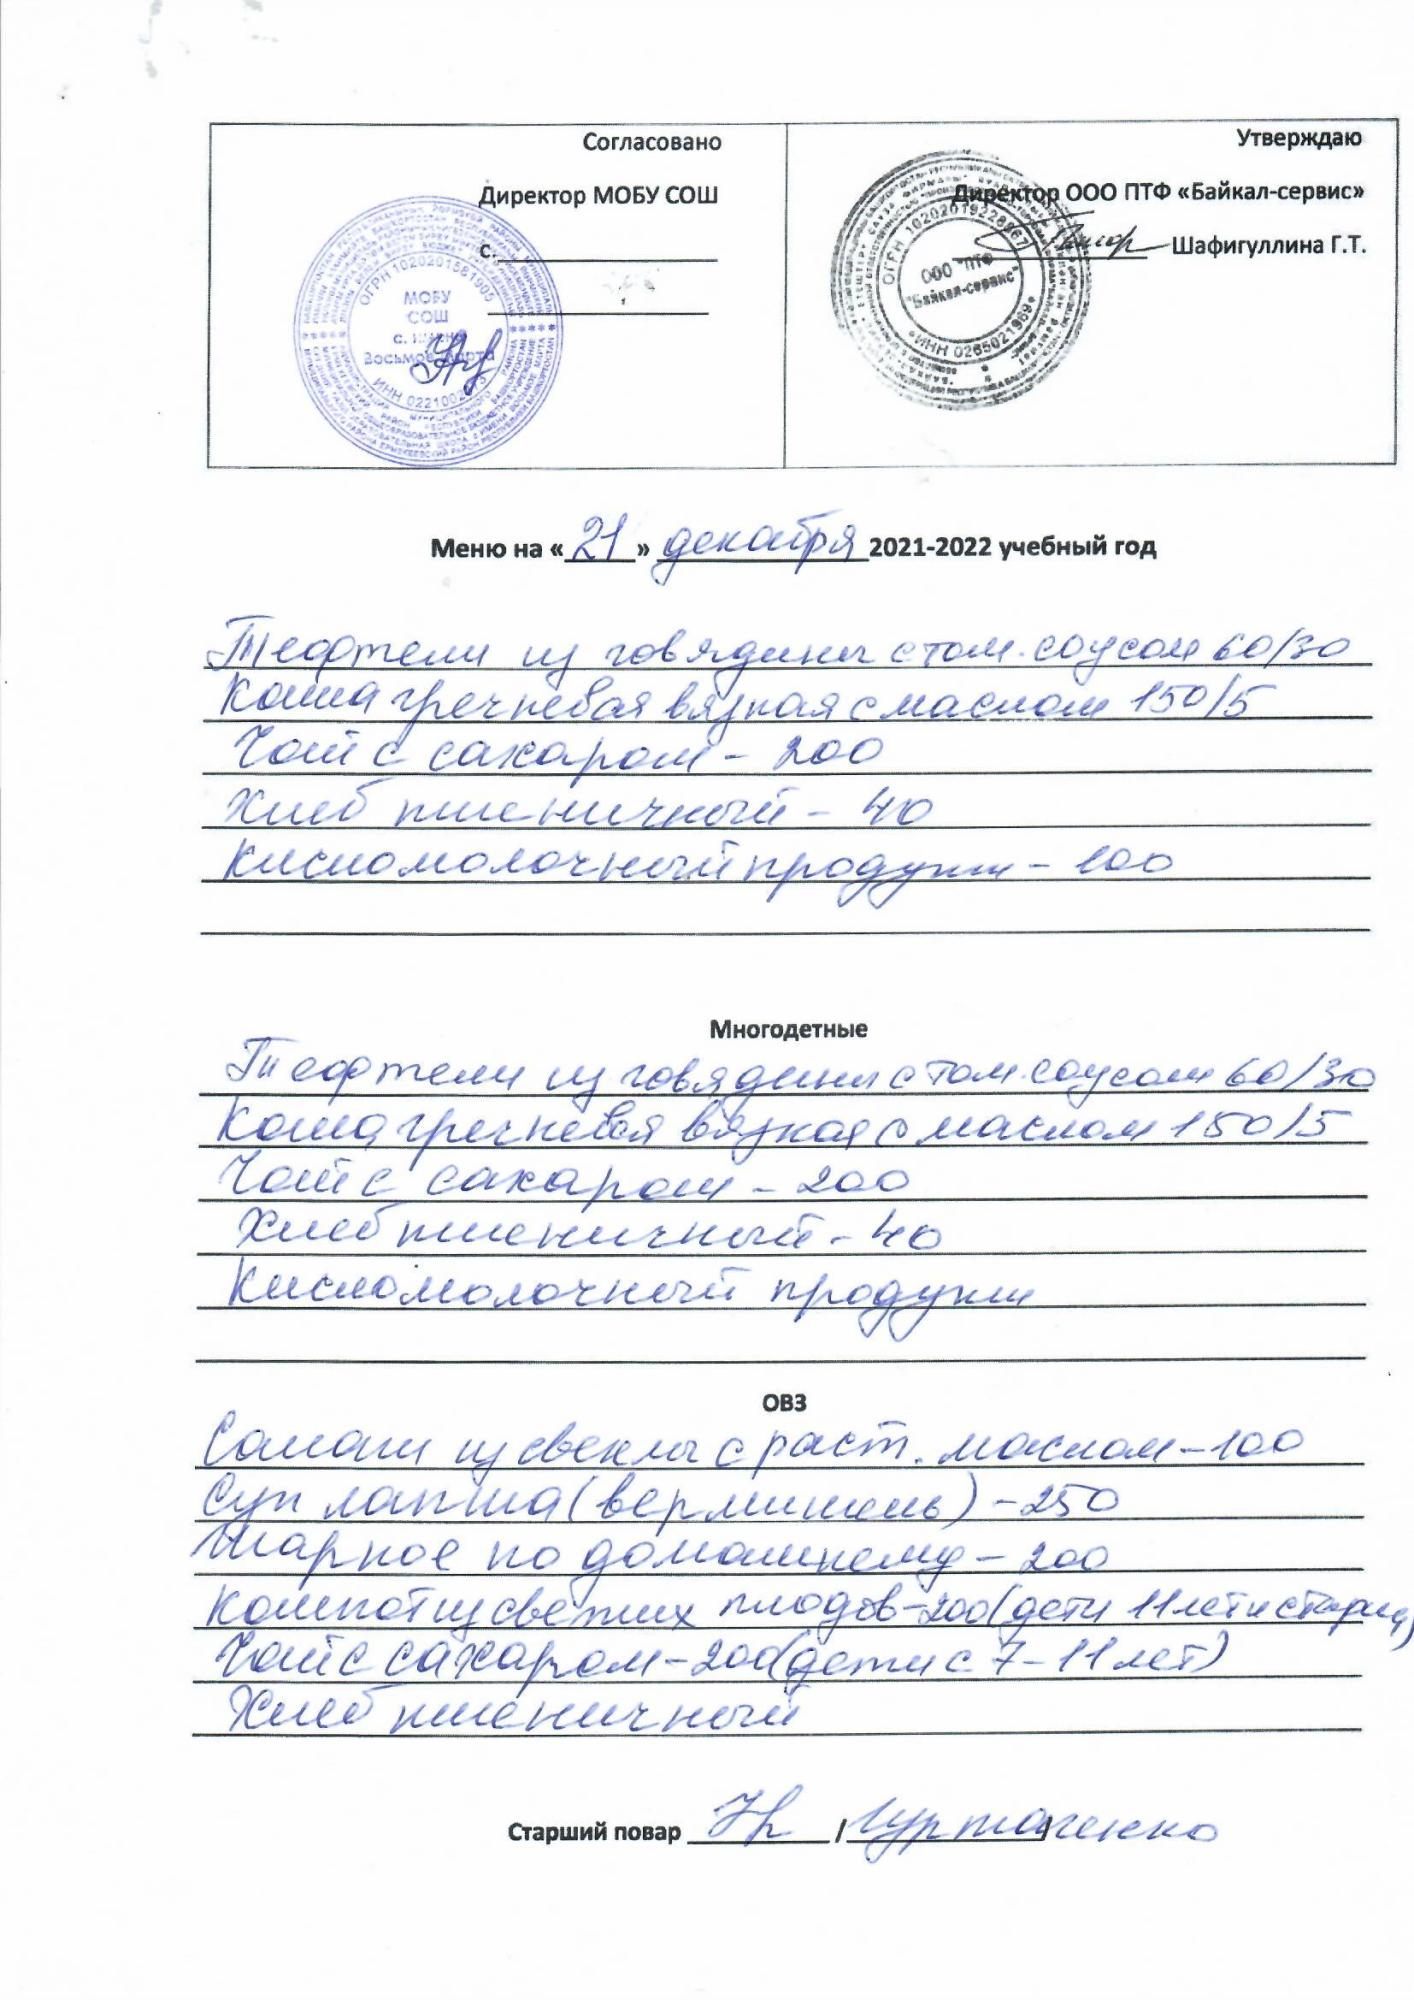 Согласовано
Директор МОБУ СОШ
с.
ОГРН 1020201581905
МОБУ
СОШ
с.
Восьмое Марта
Утверждаю
Директор ООО ПТФ «Байкал-сервис»
Шафигуллина Г.Т.
ОГРН 1020201922896
ООО "ПТФ
"Байкал-сервис"
ИНН 0265021969
Меню на « 21 » декабря 2021-2022 учебный год
Тефтели из говядины с том. соусом 60/30
Каша гречневая вязкая с маслом 150/5
Чай с сахаром - 200
Хлеб пшеничный - 40
Кисломолочный продукт - 100
Многодетные
Тефтели из говядины с том. соусом 60/30
Каша гречневая вязкая с маслом 150/5
Чай с сахаром - 200
Хлеб пшеничный - 40
Кисломолочный продукт
ОВЗ
Салат из свеклы с раст. маслом - 100
Суп лапша (вермишель) - 250
Жаркое по домашнему - 200
Компот из свежих плодов - 200 (дети 11 лет и старш)
Чай с сахаром - 200 (дети с 7-11 лет)
Хлеб пшеничный
Старший повар / /